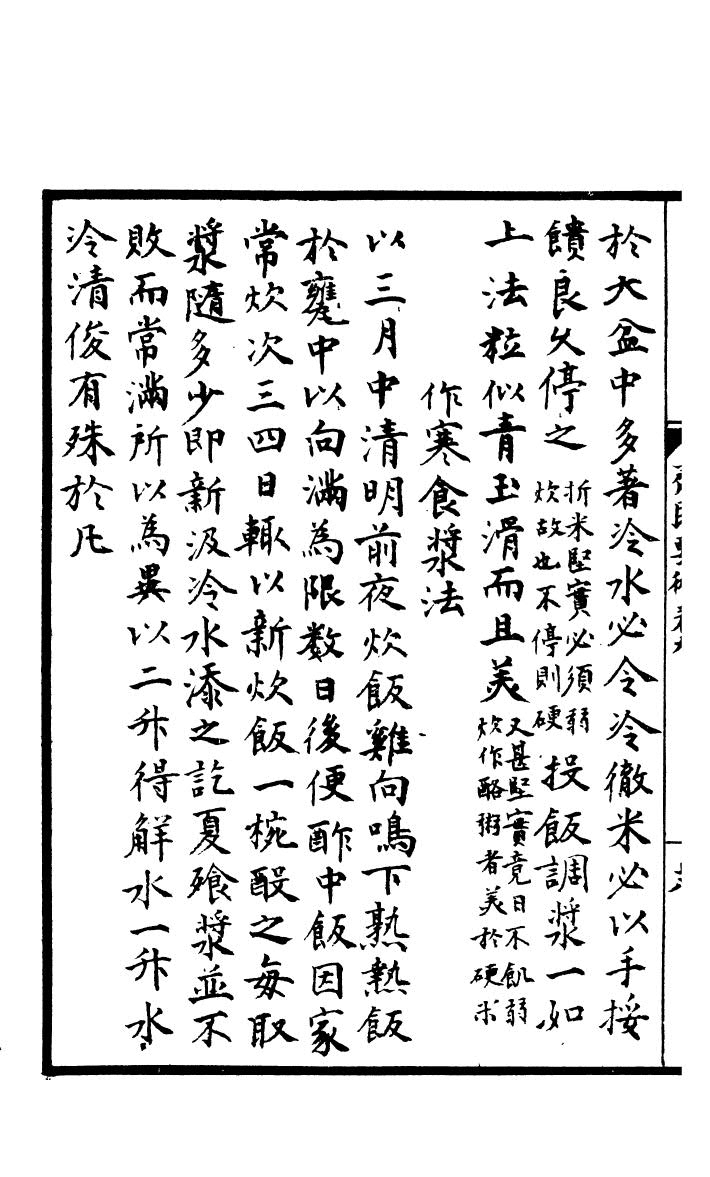 於大盆中多著冷水必令冷徹米必以手挼
饙良久停之折米堅實必須弱炊故也不停則硬投飯調漿一如
上法粒似青玉滑而且美又甚堅實竟日不飢弱炊作酪粥者美於硬米
作寒食漿法
以三月中清明前夜炊飯雞向鳴下熟熱飯
於甕中以向滿為限數日後便酢中飯因家
常炊次三四日輒以新炊飯一椀酘之每取
漿隨多少即新汲冷水添之訖夏飱漿並不
敗而常滿所以為異以二升得解水一升水
冷清俊有殊於凡
齊民要術卷九